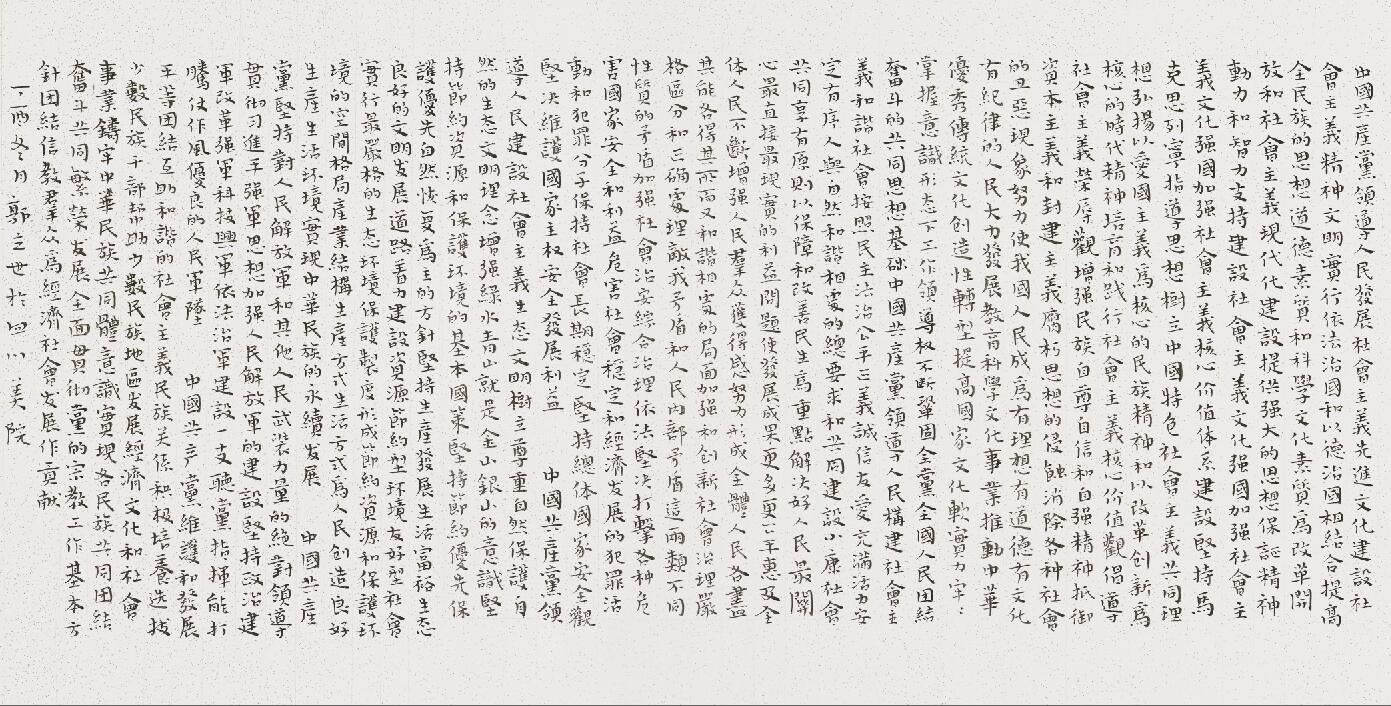 中國共產黨領導人民發展社會主義先進文化建設社
會主義精神文明實行依法治國和以德治國相結合提高
全民族的思想道德素質和科學文化素質為改革開
放和社會主義現代化建設提供强大的思想保証精神
動力和智力支持建設社會主義文化强國加强社會主
義文化强國加强社會主義核心价值体系建設堅持馬
克思列寧指導思想樹立中國特色社會主義共同理
想弘揚以愛國主義為核心的民族精神和以改革創新為
核心的時代精神培育和踐行社會主義核心价值觀倡導
社會主義榮辱觀增强民族自尊自信和自强精神抵御
資本主義和封建主義腐朽思想的侵蝕消除各种社會
的丑惡現象努力使我國人民成為有理想有道德有文化
有紀律的人民大力發展教育科學文化事業推動中華
優秀傳統文化創造性轉型提高國家文化軟實力牢牢
掌握意識形态工作領導权不断鞏固全黨全國人民団結
奮斗的共同思想基础中國共產黨領導人民構建社會主
義和諧社會按照民主法治公平正義誠信友愛充滿活力安
定有序人與自然和諧相處的總要求和共同建設小康社會
共同享有原則以保障和改善民生為重點解决好人民最關
心最直接最現實的利益問題使發展成果更多更公平惠及全
体人民不斷增强人民羣众獲得感努力形成全體人民各盡
其能各得其所而又和諧相處的局面加强和创新社會治理嚴
格區分和正确處理敵我矛盾和人民内部矛盾這兩類不同
性質的矛盾加强社會治安綜合治理依法堅决打擊各种危
害國家安全和利益危害社會穩定和經濟发展的犯罪活
動和犯罪分子保持社會長期穩定堅持總体國家安全觀
堅决維護國家主权安全發展利益 中國共產黨領
導人民建設社會主義生态文明樹立尊重自然保護自
然的生态文明理念增强綠水青山就是金山銀山的意識堅
持節約資源和保護环境的基本國策堅持節約優先保
護優先自然恢复為主的方針堅持生產發展生活富裕生态
良好的文明发展道路着力建設資源節約型环境友好型社會
實行最嚴格的生态环境保護製度形成節約資源和保護环
境的空間格局產業結構生產方式生活方式為人民创造良好
生產生活环境實現中华民族的永續发展 中國共產
黨堅持對人民解放軍和其他人民武裝力量的絕對領導
貫彻习進平强軍思想加强人民解放軍的建設堅持政治建
軍改革强軍科技興軍依法治軍建設一支聽黨指揮能打
勝仗作風優良的人民軍隊 中國共产黨維護和發展
平等団結互助和諧的社會主義民族关係积极培養选拔
少數民族干部帮助少數民族地區发展經濟文化和社會
事業鑄牢中華民族共同體意識實現各民族共同団結
奮斗共同繁榮发展全面貫彻黨的宗教工作基本方
針団結信教羣众為經濟社會发展作貢献
郭立世於四以美院